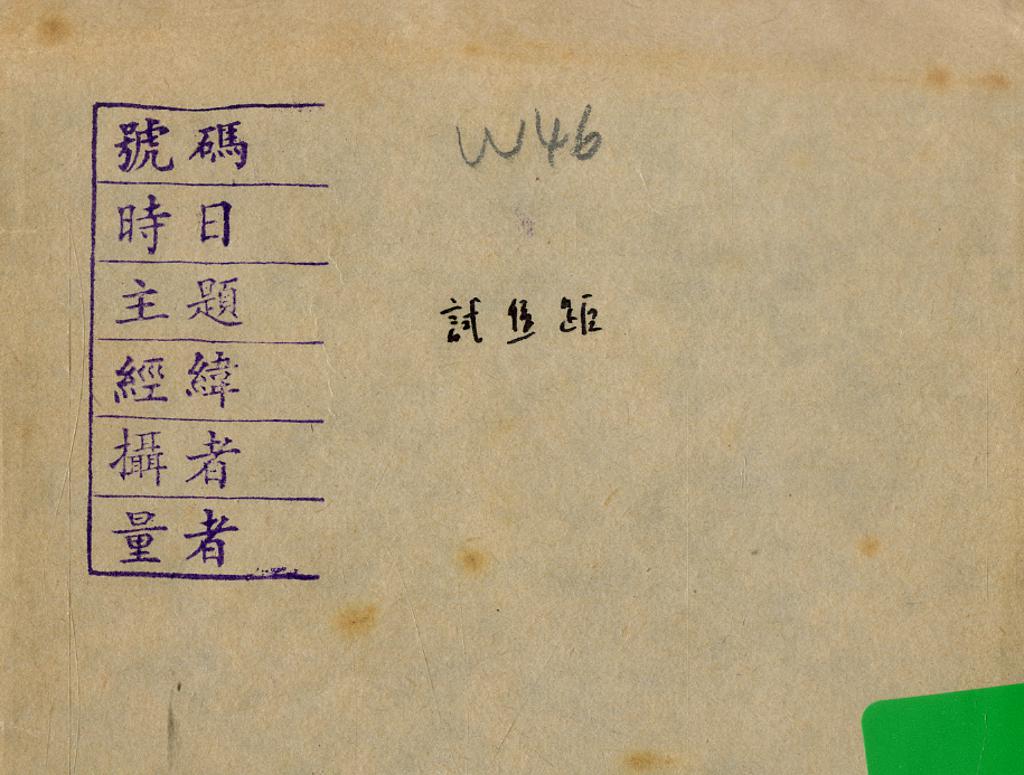 號碼 W46
時日
主題 試焦距
經緯
攝者
量者